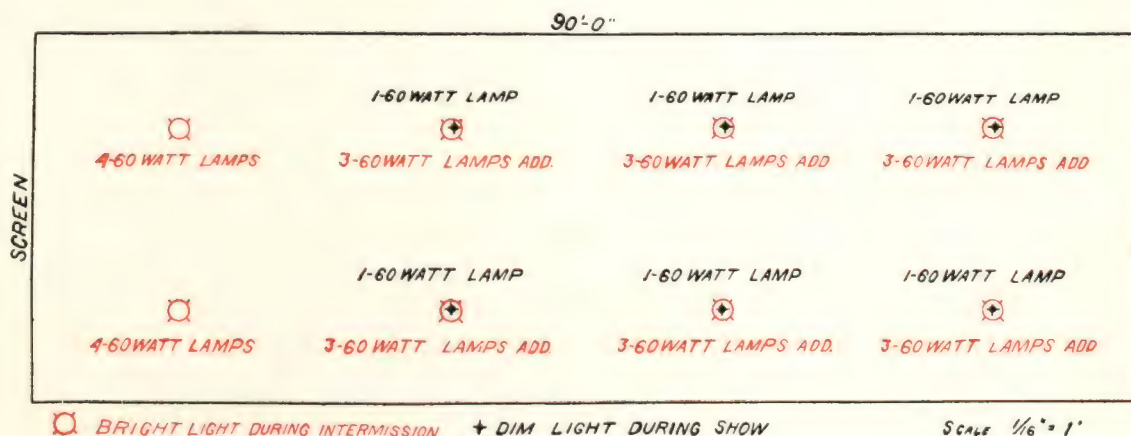 90'-0"
1-60 WATT LAMP 1-60 WATT LAMP 1-60 WATT LAMP
4-60 WATT LAMPS 3-60 WATT LAMPS ADD. 3-60 WATT LAMPS ADD 3-60 WATT LAMPS ADD
SCREEN
1-60 WATT LAMP 1-60 WATT LAMP 1-60 WATT LAMP
4-60 WATT LAMPS 3-60 WATT LAMPS ADD. 3-60 WATT LAMPS ADD. 3-60 WATT LAMPS ADD
BRIGHT LIGHT DURING INTERMISSION DIM LIGHT DURING SHOW SCALE 1/16" = 1'